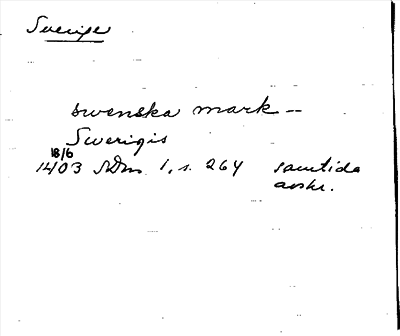 Sverige
swenska mark –
Swerigis
18/6
1403 SDns 1, s. 264 samtida
avskr.